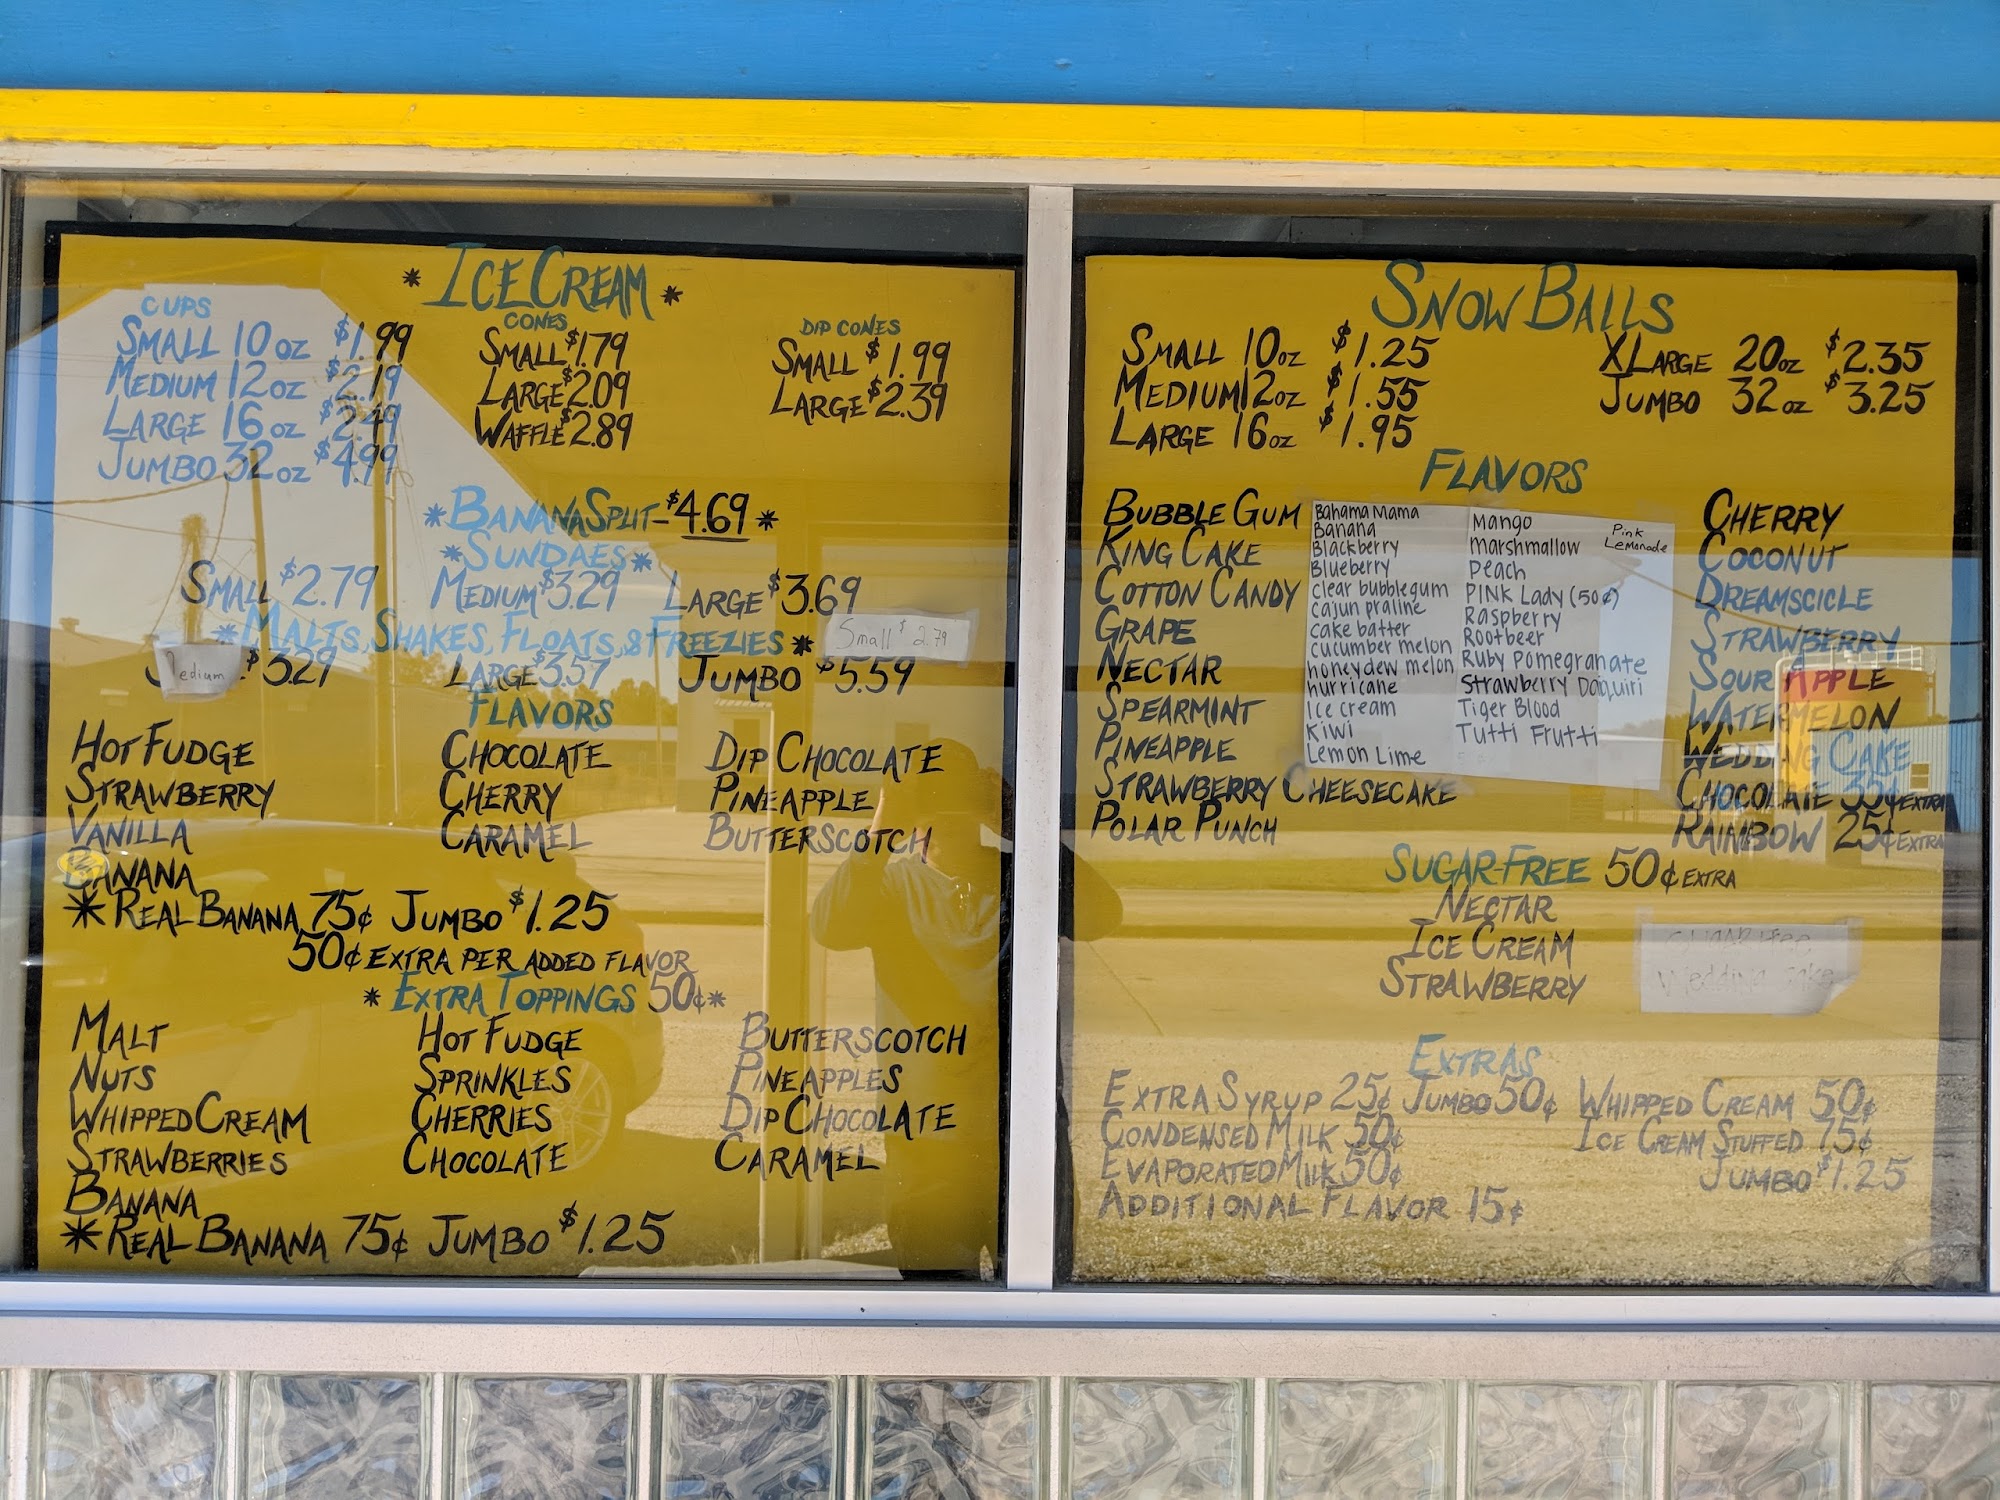 * ICE CREAM *
CUPS
SMALL 10 OZ $1.99
MEDIUM 12 OZ $2.19
LARGE 16 OZ $2.49
JUMBO 32 OZ $4.99
CONES
SMALL $1.79
LARGE $2.09
WAFFLE $2.89
DIP CONES
SMALL $1.99
LARGE $2.39
* BANANA SPLIT - $4.69 *
* SUNDAES *
SMALL $2.79 MEDIUM $3.29 LARGE $3.69
* MALTS, SHAKES, FLOATS, & FREEZIES *
Small $2.79
Medium $3.29 LARGE $3.57 JUMBO $5.59
FLAVORS
HOT FUDGE CHOCOLATE DIP CHOCOLATE
STRAWBERRY CHERRY PINEAPPLE
VANILLA CARAMEL BUTTERSCOTCH
BANANA
* REAL BANANA 75¢ JUMBO $1.25
50¢ EXTRA PER ADDED FLAVOR
* EXTRA TOPPINGS 50¢ *
MALT HOT FUDGE BUTTERSCOTCH
NUTS SPRINKLES PINEAPPLES
WHIPPED CREAM CHERRIES DIP CHOCOLATE
STRAWBERRIES CHOCOLATE CARAMEL
BANANA
* REAL BANANA 75¢ JUMBO $1.25
SNOW BALLS
SMALL 10 OZ $1.25
MEDIUM 12 OZ $1.55
LARGE 16 OZ $1.95
XLARGE 20 OZ $2.35
JUMBO 32 OZ $3.25
FLAVORS
BUBBLE GUM
KING CAKE
COTTON CANDY
GRAPE
NECTAR
SPEARMINT
PINEAPPLE
STRAWBERRY CHEESECAKE
POLAR PUNCH
Bahama Mama
Banana
Blackberry
Blueberry
clear bubblegum
cajun praline
cake batter
cucumber melon
honeydew melon
hurricane
Ice cream
Kiwi
Lemon Lime
Mango
marshmallow
peach
PINK Lady (50¢)
Raspberry
Rootbeer
Ruby Pomegranate
Strawberry Daquiri
Tiger Blood
Tutti Frutti
Pink
Lemonade
CHERRY
COCONUT
DREAMSCICLE
STRAWBERRY
SOUR APPLE
WATERMELON
WEDDING CAKE
CHOCOLATE 35¢ EXTRA
RAINBOW 25¢ EXTRA
SUGAR-FREE 50¢ EXTRA
NECTAR
ICE CREAM
STRAWBERRY
sugar free
Wedding cake
EXTRAS
EXTRA SYRUP 25¢ JUMBO 50¢
CONDENSED MILK 50¢
EVAPORATED MILK 50¢
ADDITIONAL FLAVOR 15¢
WHIPPED CREAM 50¢
ICE CREAM STUFFED 75¢
JUMBO $1.25